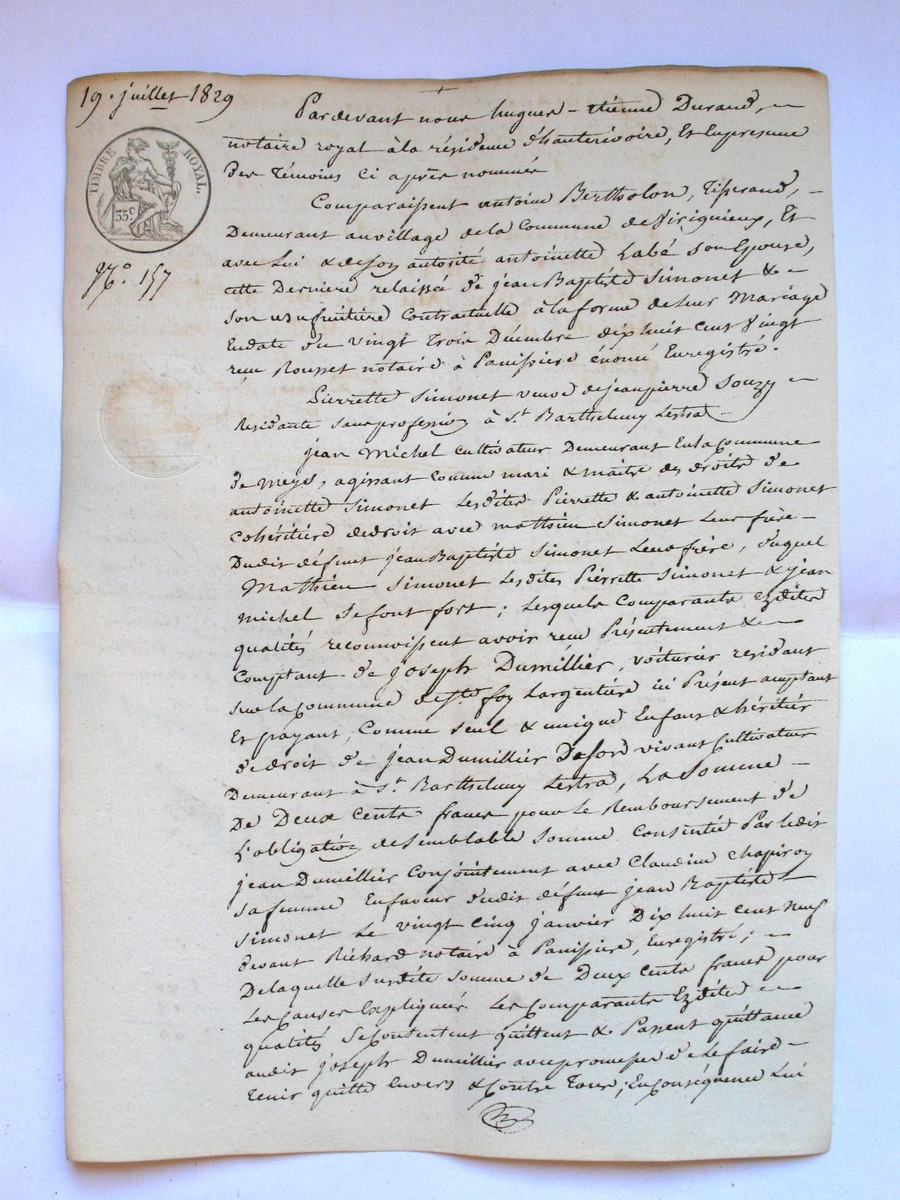 19. juillet 1829
TIMBRE ROYAL.
35 c
N.o 157
Pardevant nous hugues-étienne Durand,
notaire royal à la résidence d'hauterivoire, Et En presence
des Témoins Ci après nommés
Comparaissent antoine Bertholon, Tisserand,
Demeurant au village de la Commune de Virignieux, Et
avec Lui & de son autorité antoinette Labé son Epouse,
cette Dernière relaissée de jean Baptiste Simonet &
son usufruitière Contractuelle à la forme de leur Mariage
En date du vingt Trois Décembre dix huit Cent Vingt
reçu Rousset notaire à Panissiere énoncé Enregistré.
Pierrette Simonet veuve de jean pierre Souzy
Residante sans profession à St. Barthelemy Lestra
jean Michel Cultivateur Demeurant En la Commune
de Meys, agissant Comme mari & maitre des droits de
antoinette Simonet Lesdites Pierrette & antoinette Simonet
Cohéritière de droit avec mathieu Simonet Leur frère
Dudit défunt jean Baptiste Simonet Leur frère, duquel
Mathieu Simonet Lesdites Pierrette Simonet & jean
michel Se font fort; Lesquels Comparants Ezdites
qualités reconnoissent avoir reçu Présentement &
Comptant de Joseph Dumillier, voiturier residant
sur la Commune de Ste. foy Largentière ici Présent acceptant
Et payant, Comme seul & unique Enfant & héritier
de droit de jean Dumillier De son vivant Cultivateur
Demeurant à St. Barthelemy Lestra, La Somme
De Deux Cents francs pour le Remboursement de
L'obligation de Semblable Somme Consentie Par ledit
jean Dumillier Conjointement avec Claudine Chapiron
sa femme En faveur dudit défunt jean Baptiste
Simonet Le vingt cinq janvier Dix huit Cent Neuf
devant Richard notaire à Panissiere, Enregistré;
De laquelle Susdite Somme de Deux Cents francs pour
Les Causes Expliquées Les Comparants Ezdites
qualités Se Contentent quittent & Passent quittance
audit Joseph Dumillier avec promesse de Le faire
Tenir quitte Envers & Contre Tous; En Conséquence Lui